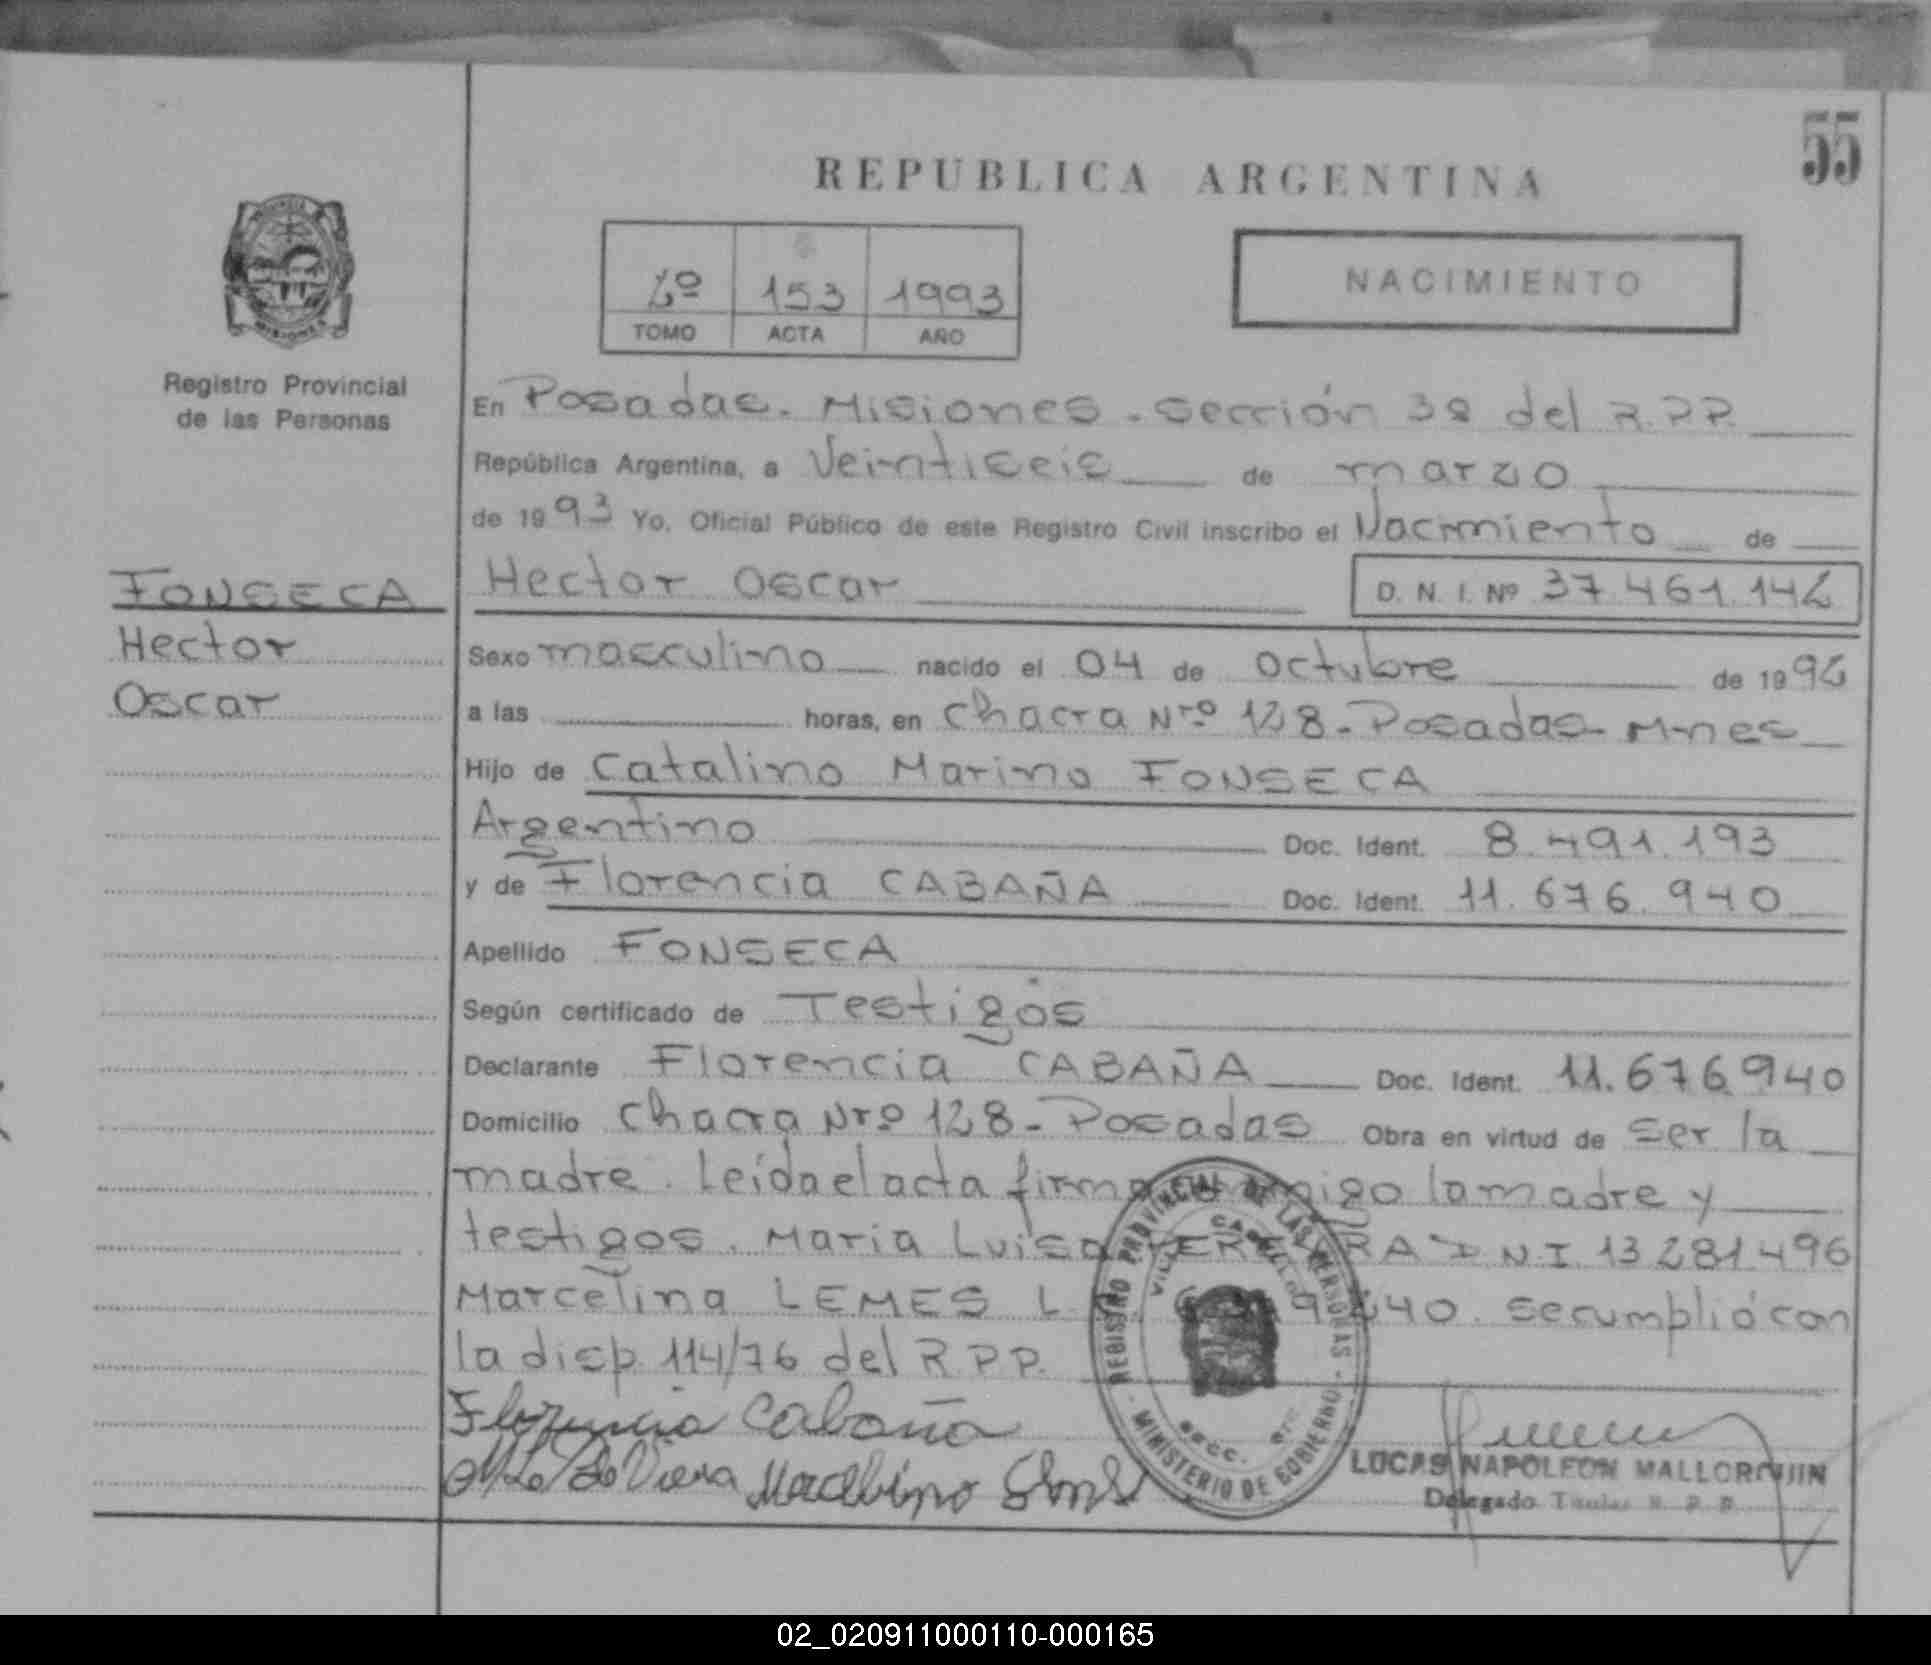 55
REPUBLICA ARGENTINA
2º 153 1993
TOMO ACTA AÑO
NACIMIENTO
Registro Provincial
de las Personas
En Posadas. Misiones. Sección 3ª del R.P.P.
República Argentina, a Veintiseis de marzo
de 1993 Yo, Oficial Público de este Registro Civil inscribo el Nacimiento de
FONSECA
Hector
Oscar
Hector Oscar D. N. I. Nº 37.461.142
Sexo masculino nacido el 04 de octubre de 1992
a las horas, en Chacra Nrº 128 - Posadas - M-nes
Hijo de Catalino Marino FONSECA
Argentino Doc. Ident. 8.491.193
y de Florencia CABAÑA Doc. Ident. 11.676.940
Apellido FONSECA
Según certificado de Testigos
Declarante Florencia CABAÑA Doc. Ident. 11.676.940
Domicilio Chacra Nrº 128 - Posadas Obra en virtud de ser la
madre. Leída el acta firma conmigo la madre y
testigos. Maria Luisa D.N.I. 13.281.496
Marcelina LEMES L. 40. Se cumplió con
la disp. 114/76 del R.P.P.
REGISTRO PROVINCIAL DE LAS PERSONAS - MINISTERIO DE GOBIERNO
VILLA CABELLO
SECC.
Florencia Cabaña
LUCAS NAPOLEON MALLORQUIN
Delegado Titular R. P. P.
02_020911000110-000165